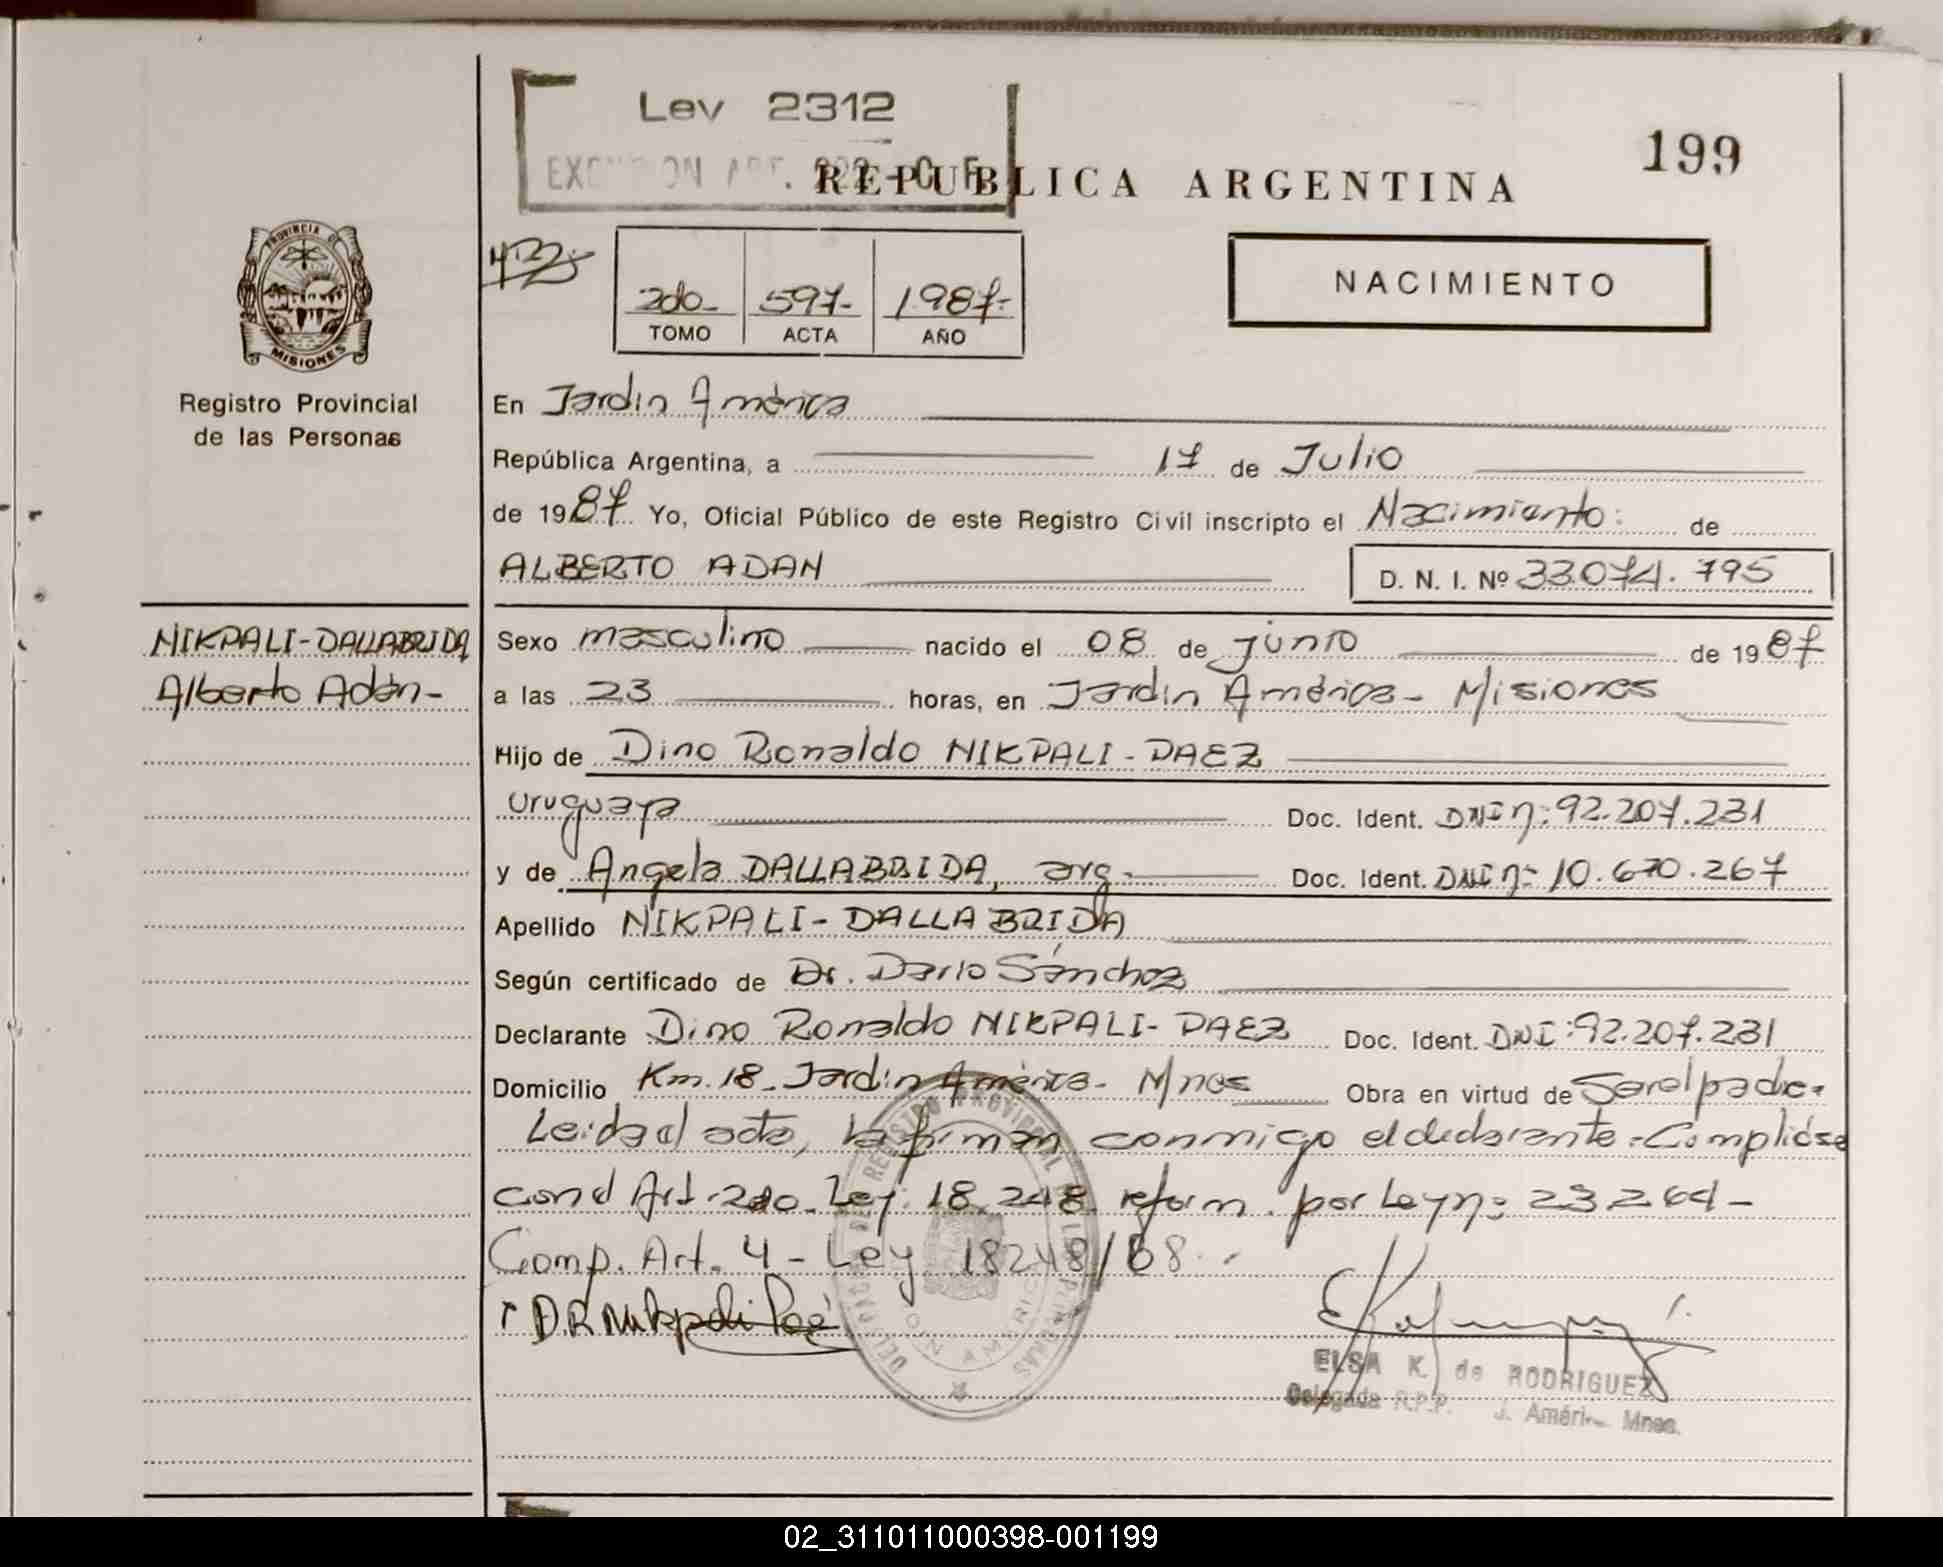 Ley 2312
199
REPUBLICA ARGENTINA
PROVINCIA DE
MISIONES
2do- 597- 1.987.-
TOMO ACTA AÑO
NACIMIENTO
Registro Provincial
de las Personas
En Jardin América
República Argentina, a 17 de Julio
de 1987 Yo, Oficial Público de este Registro Civil inscripto el Nacimiento: de
ALBERTO ADAN D. N. I. Nº 33.074.795
NIKPALI-DALLABRIDA
Alberto Adán-
Sexo masculino nacido el 08 de junio de 1987
a las 23 horas, en Jardin América - Misiones
Hijo de Dino Ronaldo NIKPALI - PAEZ
uruguaya Doc. Ident. DNI n: 92.207.231
y de Angela DALLABRIDA, arg. Doc. Ident. DNI n: 10.670.267
Apellido NIKPALI - DALLABRIDA
Según certificado de Dr. Dario Sánchez
Declarante Dino Ronaldo NIKPALI - PAEZ Doc. Ident. DNI: 92.207.231
Domicilio Km. 18 - Jardin América - Mnes Obra en virtud de Ser el padre.
Leida el acta, la firman conmigo el declarante. Complióse
con el Art. 2do. Ley: 18.248 reform. por Ley n: 23264-
Comp. Art. 4 - Ley 18248/68.
ELSA K. de RODRIGUEZ
Delegada R.P.P. J. Améri Mnes.
02_311011000398-001199